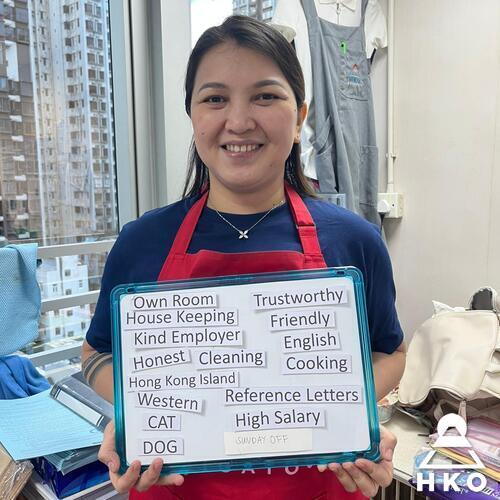 Own Room
Trustworthy
House Keeping
Friendly
Kind Employer
English
Honest
Cleaning
Cooking
Hong Kong Island
Western
Reference Letters
CAT
High Salary
DOG
SUNDAY OFF
HKO